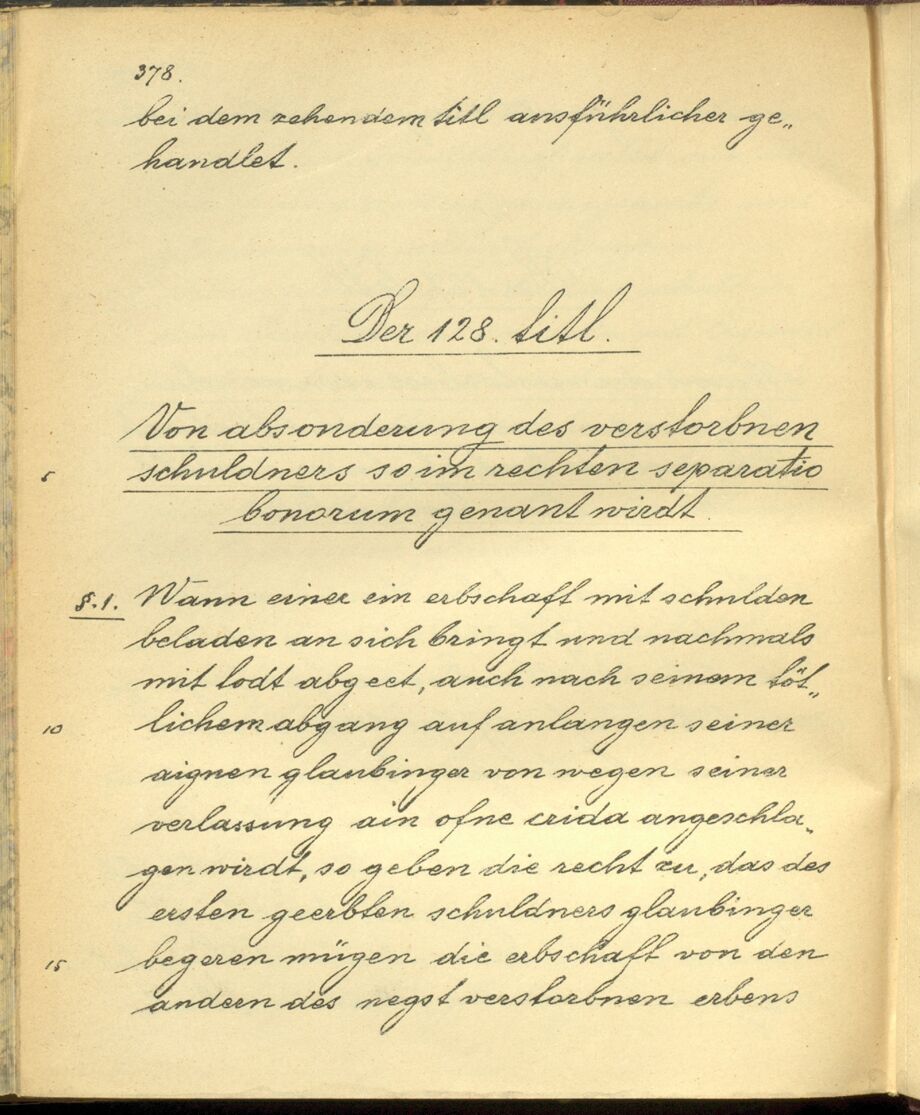 378.
bei dem zehendem titl ausführlicher ge„
handlet.
Der 128. titl.
Von absonderung des verstorbnen
5 schuldners so im rechten separatio
bonorum genant wirdt.
§. 1. Wann einer ein erbschaft mit schulden
beladen an sich bringt und nachmals
mit todt abgeet, auch nach seinem töt„
10 lichem abgang auf anlangen seiner
aignen glaubinger von wegen seiner
verlassung ain ofne crida angeschla„
gen wirdt, so geben die recht zu, das des
ersten geerbten schuldners glaubinger
15 begeren mügen die erbschaft von den
andern des negst verstorbnen erbens